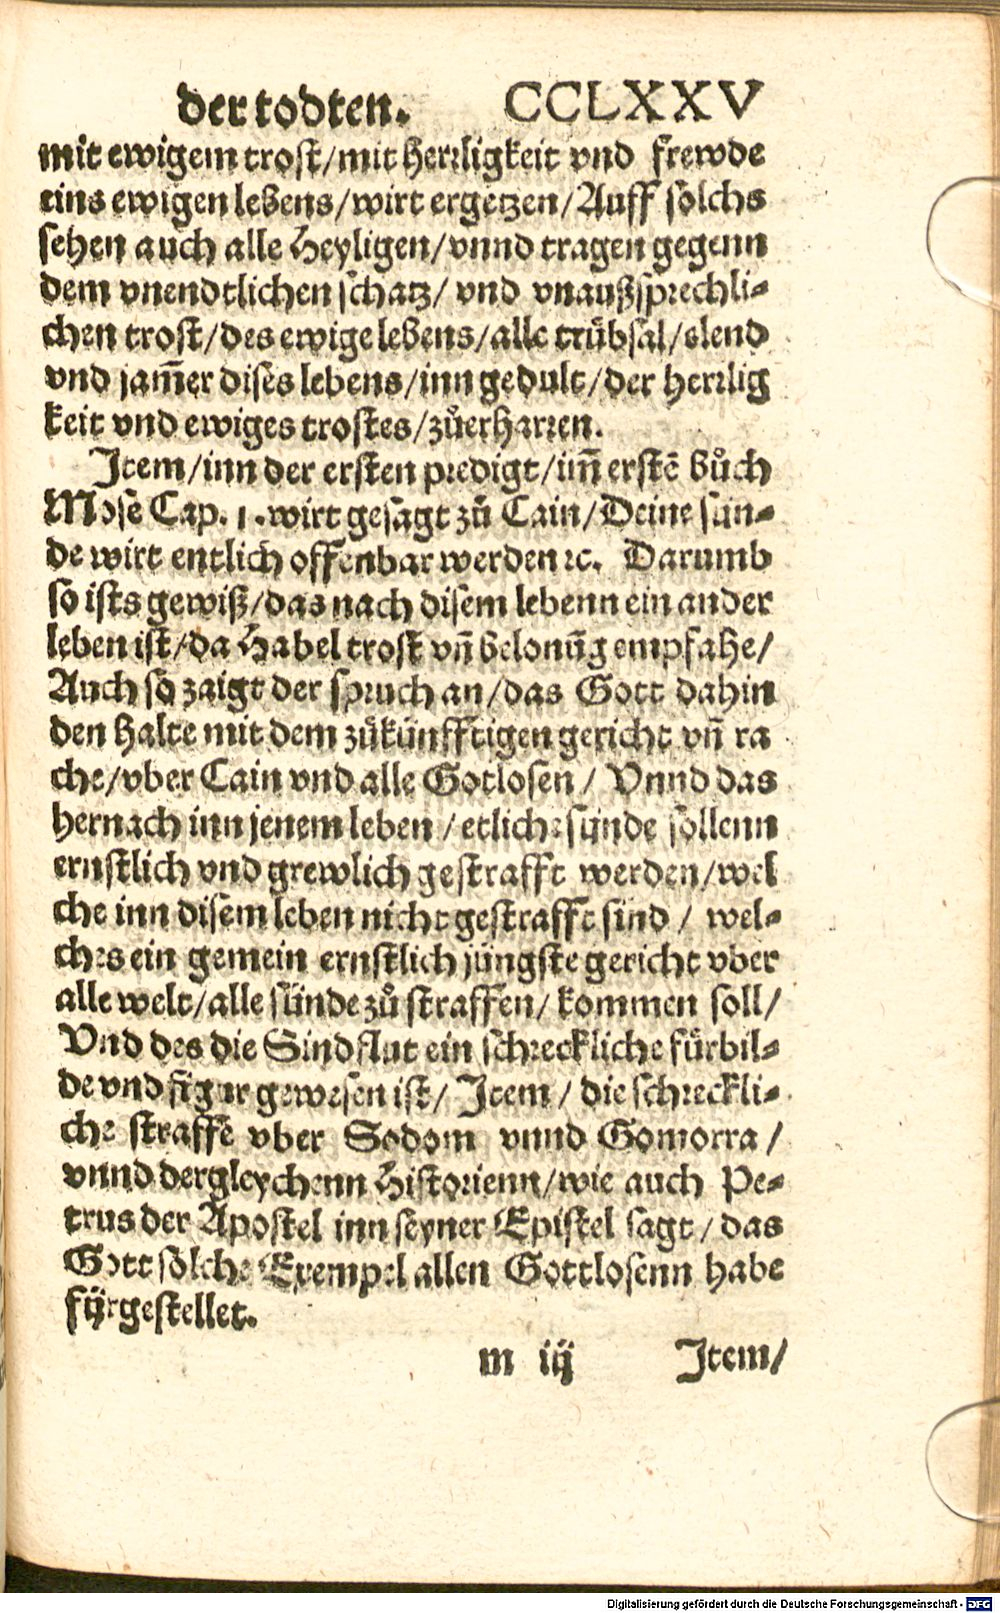 der todten. CCLXXV
mit ewigem trost/mit herrligkeit vnd frewde
eins ewigen lebens/wirt ergetzen/Auff solchs
sehen auch alle Heyligen/vnnd tragen gegenn
dem vnendtlichen schatz/ vnd vnaußsprechli-
chen trost/des ewigē lebens/alle trübsal/elend
vnd jam̄er dises lebens/inn gedult/der herrlig
keit vnd ewiges trostes/zůerharren.
Item/inn der ersten predigt/im̄ erstē bůch
Mose Cap. 1. wirt gesagt zů Cain/Deine sün-
de wirt entlich offenbar werden ꝛc. Darumb
so ists gewiß/das nach disem lebenn ein ander
leben ist/da Habel trost vn̄ belonūg empfahe/
Auch so zaigt der spruch an/das Gott dahin
den halte mit dem zůkünfftigen gericht vn̄ ra
che/vber Cain vnd alle Gotlosen/ Vnnd das
hernach inn jenem leben/etliche sünde sollenn
ernstlich vnd grewlich gestrafft werden/wel
che inn disem leben nicht gestrafft sind/ wel-
ches ein gemein ernstlich jüngste gericht vber
alle welt/alle sünde zů straffen/kommen soll/
Vnd des die Sindflut ein schreckliche fürbil-
de vnd figur gewesen ist/ Item/ die schreckli-
che straffe vber Sodom vnnd Gomorra/
vnnd dergleychenn Historienn/wie auch Pe-
trus der Apostel inn seyner Epistel sagt/das
Gott sölche Exempel allen Gottlosenn habe
fürgestellet.
m iij Item/
Digitalisierung gefördert durch die Deutsche Forschungsgemeinschaft - DFG